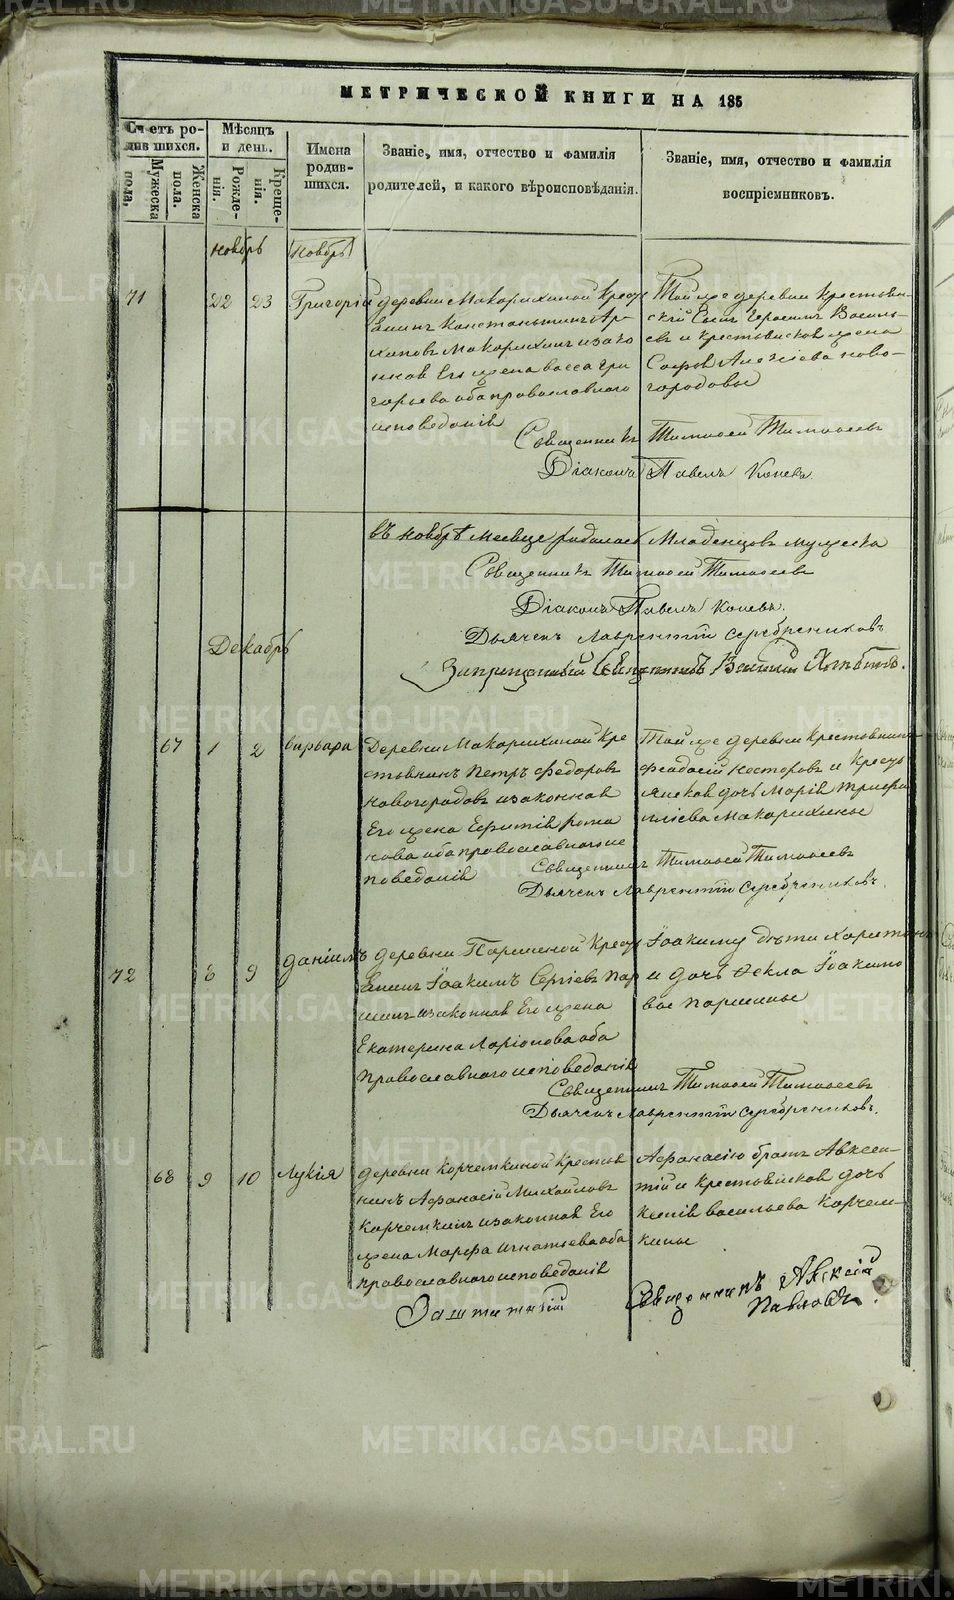 МЕТРИЧЕСКОЙ КНИГИ НА 185
Счетъ родившихся.
Мужеска пола.
Женска пола.
Мѣсяцъ и день.
Рожденія.
Крещенія.
Имена родившихся.
Званіе, имя, отчество и фамилія родителей, и какого вѣроисповѣданія.
Званіе, имя, отчество и фамилія воспріемниковъ.
ноябрь
ноябрь
71
22
23
Григорій
деревни Макарихиной Кресть
янинъ Константинъ Ар-
хиповъ Макарихинъ изако
нная Его жена васса гри
горьева оба православнаго
исповеданія
Той же деревни Крестьян-
скій Сынъ Герасимъ Василь-
евъ и крестьянская жена
Софья Алексіева ново-
городовы
Священникъ Тимофей Тимофеевъ
Діаконъ Павелъ Коневъ.
въ ноябрѣ месяце родилось Младенцовъ мужеска
Священникъ Тимофей Тимофеевъ
Діаконъ Павелъ Коневъ.
Дьячекъ Лаврентій Серебрениковъ
Запрещенный Священникъ
Декабрь
67
1
2
варвара
Деревни Макарихиной Кре
стьянинъ Петръ Федоровъ
новогородовъ изаконная
Его жена Ефимія Рома
нова оба православнаго ис
поведанія
Той же деревни Крестьянинъ
Феодосій Несторовъ и Кресть
янская дочь Марія Трифи
лієва Макарихины
Священникъ Тимофей Тимофеевъ
Дьячекъ Лаврентій Серебрениковъ.
72
8
9
Даніилъ
деревни Паршиной Кресть
янинъ Іоакимъ Сергіевъ Пар
шинъ изаконная Его жена
Екатерина Ларіонова оба
православнаго исповеданія
Іоакиму дѣти Харитонъ
и дочь Ѳекла Іоакимо
вы Паршины
Священникъ Тимофей Тимофеевъ
Дьячекъ Лаврентій Серебрениковъ.
68
9
10
Лукія
деревни Корчемкиной Крестья
нинъ Афонасій Михайловъ
Корчемкинъ изаконная Его
жена Марфа Игнатьева оба
православнаго исповеданія
Афонасію братъ Авксен-
тій и крестьянская дочь
Ксенія васильева Корчем-
кины
Заштатній Священникъ Алексій
Павловъ
METRIKI.GASO-URAL.RU